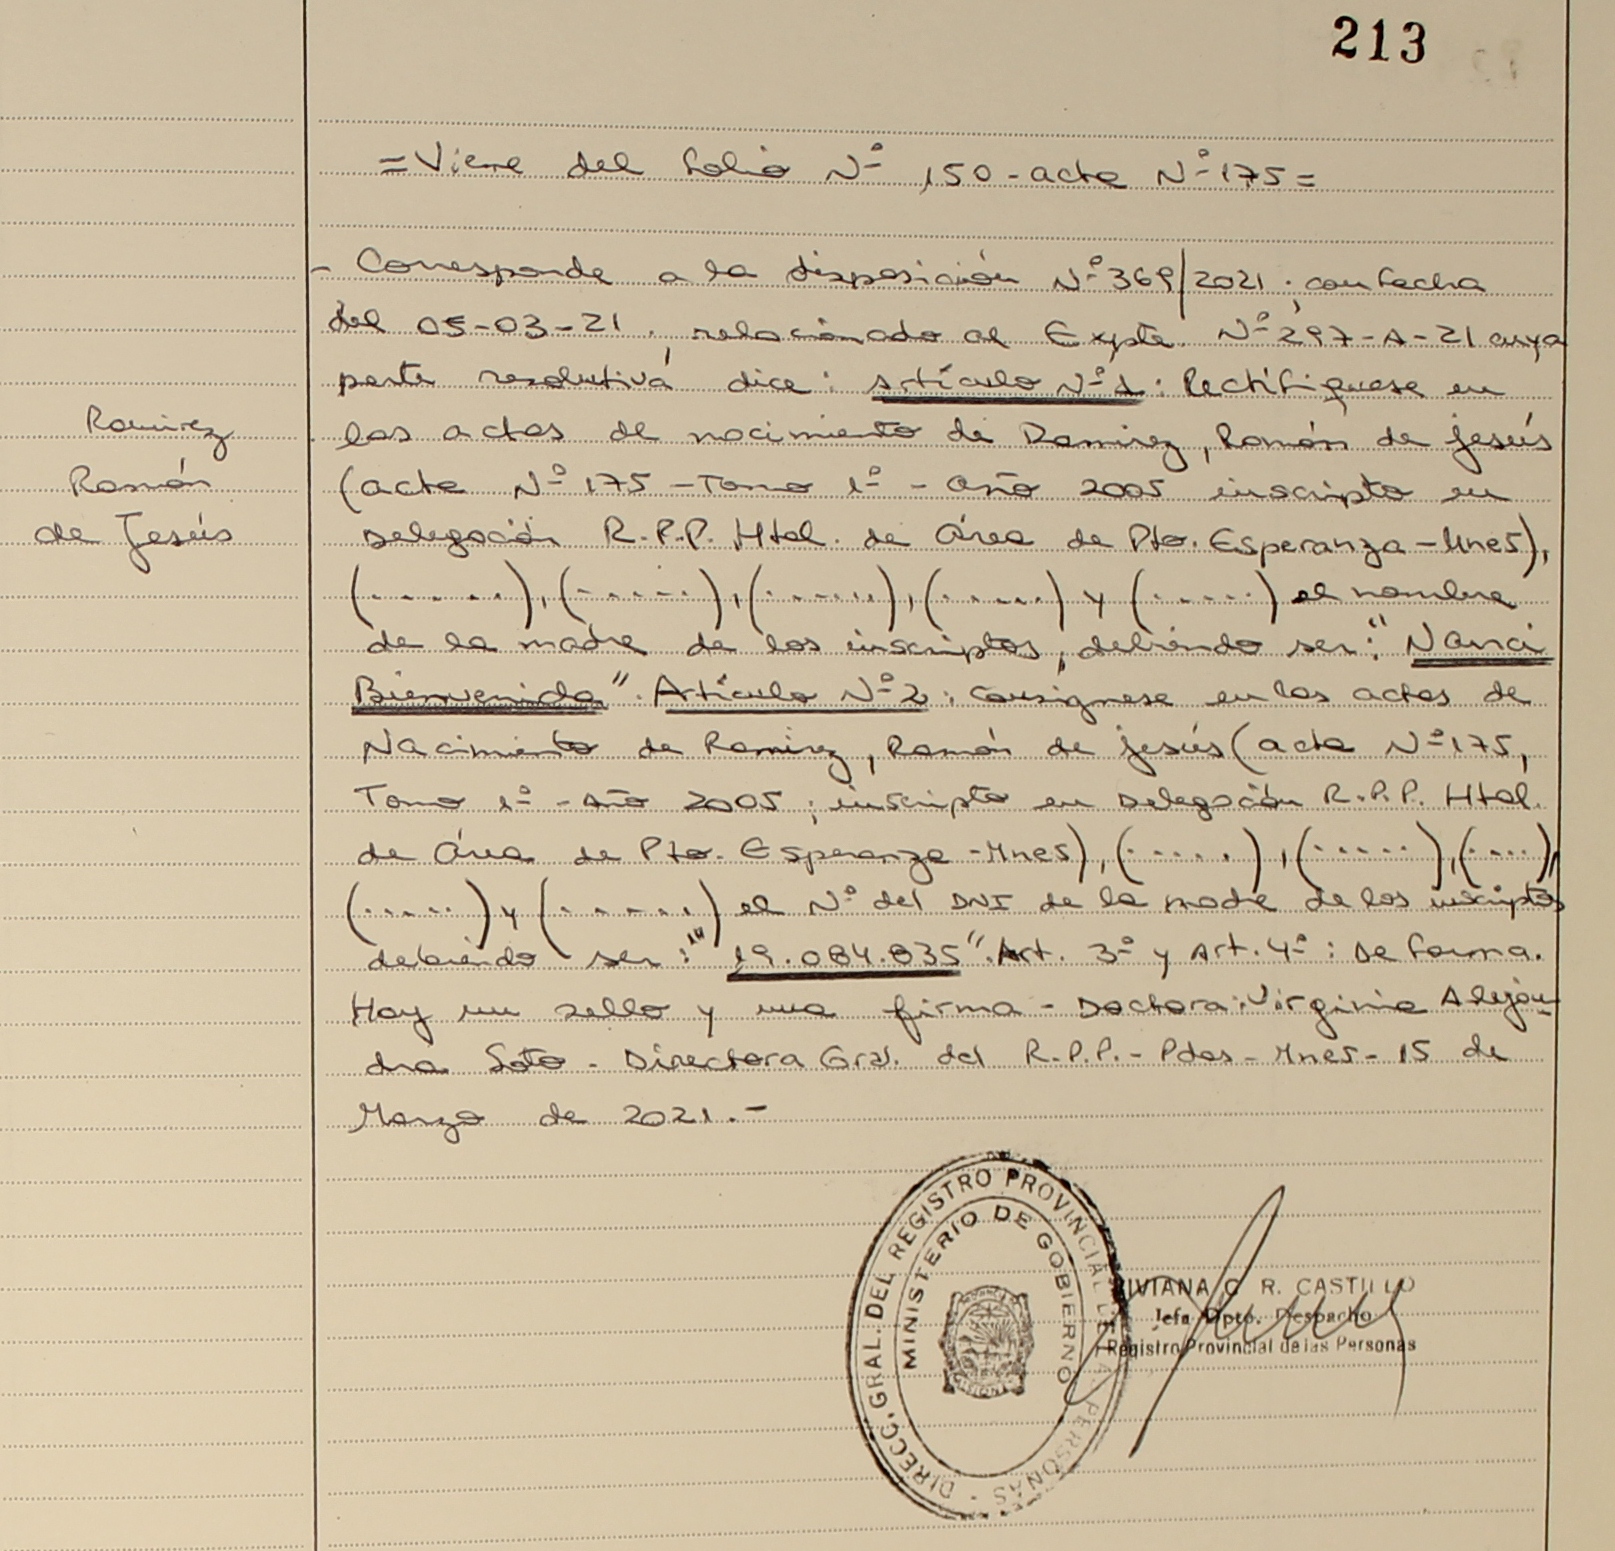 213
= Viene del folio Nº 150 - acta Nº 175 =
- Corresponde a la disposición Nº 369/2021; con fecha
del 05-03-21, relacionado al Expte. Nº 297-A-21 cuya
parte resolutiva dice: Artículo Nº 1: Rectifíquese en
las actas de nacimiento de Ramirez, Ramón de Jesús
(acta Nº 175 - Tomo 1º - Año 2005 inscripto en
Delegación R.P.P. Htal. de Área de Pto. Esperanza - Mnes),
(......), (......), (......), (......) y (.....) el nombre
de la madre de los inscriptos, debiendo ser: "Nanci
Bienvenida". Artículo Nº 2: Consígnese en las actas de
Nacimiento de Ramirez, Ramón de Jesús (acta Nº 175,
Tomo 1º - Año 2005; inscripto en Delegación R.P.P. Htal.
de Área de Pto. Esperanza - Mnes), (.....), (.....), (....),
(.....) y (......) el Nº del DNI de la madre de los inscriptos
debiendo ser: "19.084.835". Art. 3º y Art. 4º: De forma.
Hay un sello y una firma - Doctora: Virginia Alejan-
dra Soto - Directora Gral. del R.P.P. - Pdas - Mnes - 15 de
Marzo de 2021.-
Ramirez
Ramón
de Jesús
DIRECC. GRAL. DEL REGISTRO PROVINCIAL DE LAS PERSONAS
MINISTERIO DE GOBIERNO
VIVIANA C. R. CASTILLO
Jefa Dpto. Despacho
Registro Provincial de las Personas